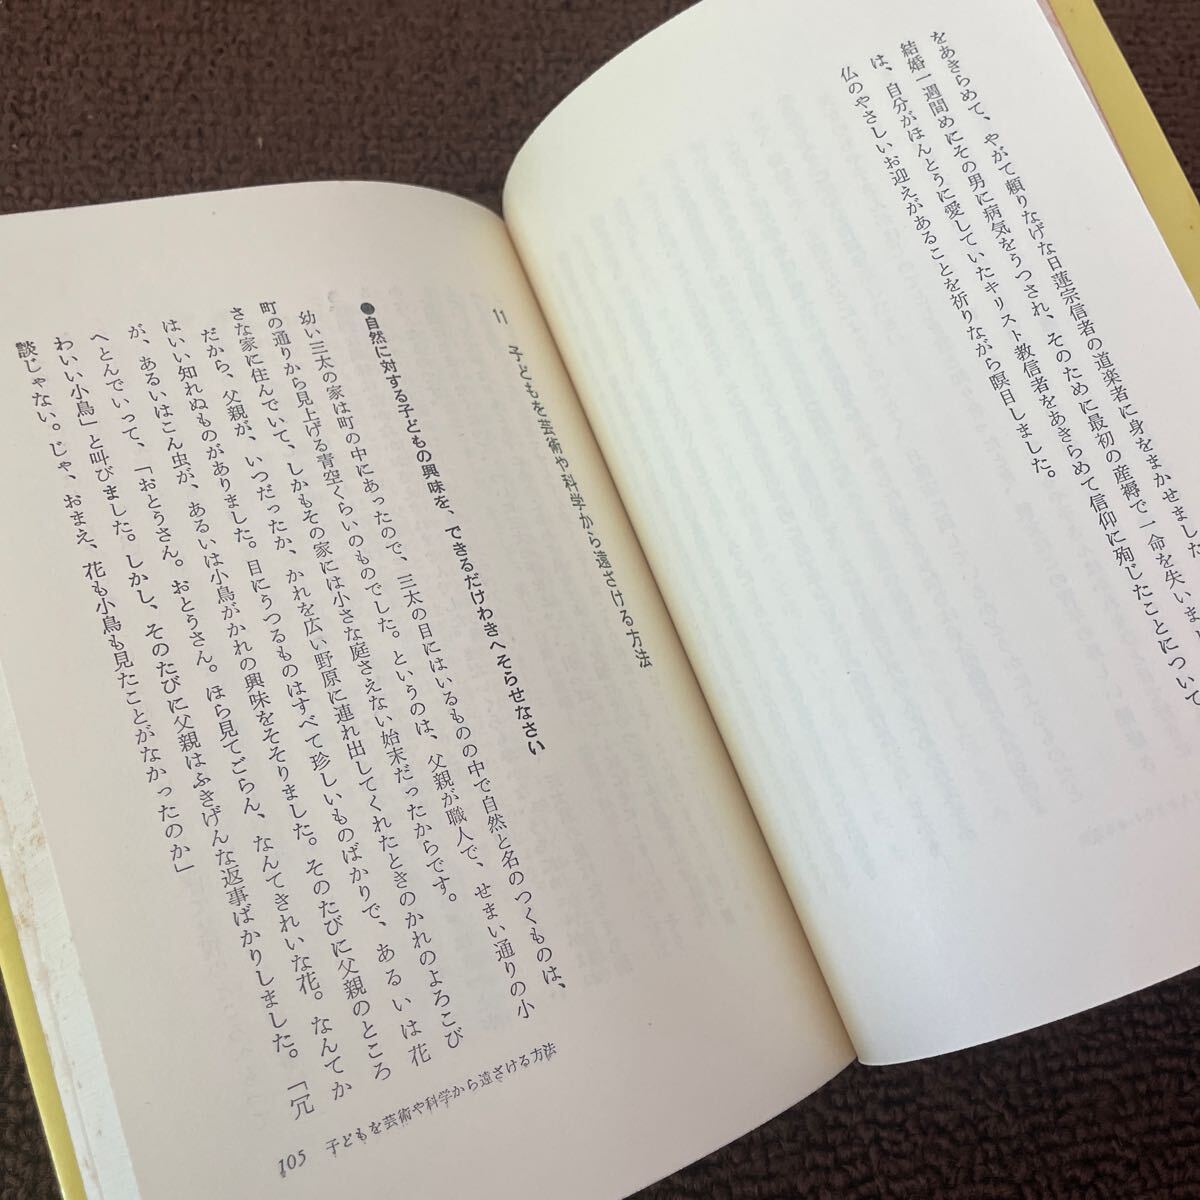 をあきらめて、やがて頼りなげな日蓮宗信者の道楽者に身をまかせました
結婚一週間めにその男に病気をうつされ、そのために最初の産褥で一命を失いまし
は、自分がほんとうに愛していたキリスト教信者をあきらめて信仰に殉じたことについて
仏のやさしいお迎えがあることを祈りながら瞑目しました。
11 子どもを芸術や科学から遠ざける方法
●自然に対する子どもの興味を、できるだけわきへそらせなさい
幼い三太の家は町の中にあったので、三太の目にはいるものの中で自然と名のつくものは、
町の通りから見上げる青空くらいのものでした。というのは、父親が職人で、せまい通りの小
さな家に住んでいて、しかもその家には小さな庭さえない始末だったからです。
だから、父親が、いつだったか、かれを広い野原に連れ出してくれたときのかれのよろこび
はいい知れぬものがありました。目にうつるものはすべて珍しいものばかりで、あるいは花
が、あるいはこん虫が、あるいは小鳥がかれの興味をそそりました。そのたびに父親のところ
へとんでいって、「おとうさん。おとうさん。ほら見てごらん、なんてきれいな花。なんてか
わいい小鳥」と叫びました。しかし、そのたびに父親はふきげんな返事ばかりしました。「冗
談じゃない。じゃ、おまえ、花も小鳥も見たことがなかったのか」
105 子どもを芸術や科学から遠ざける方法